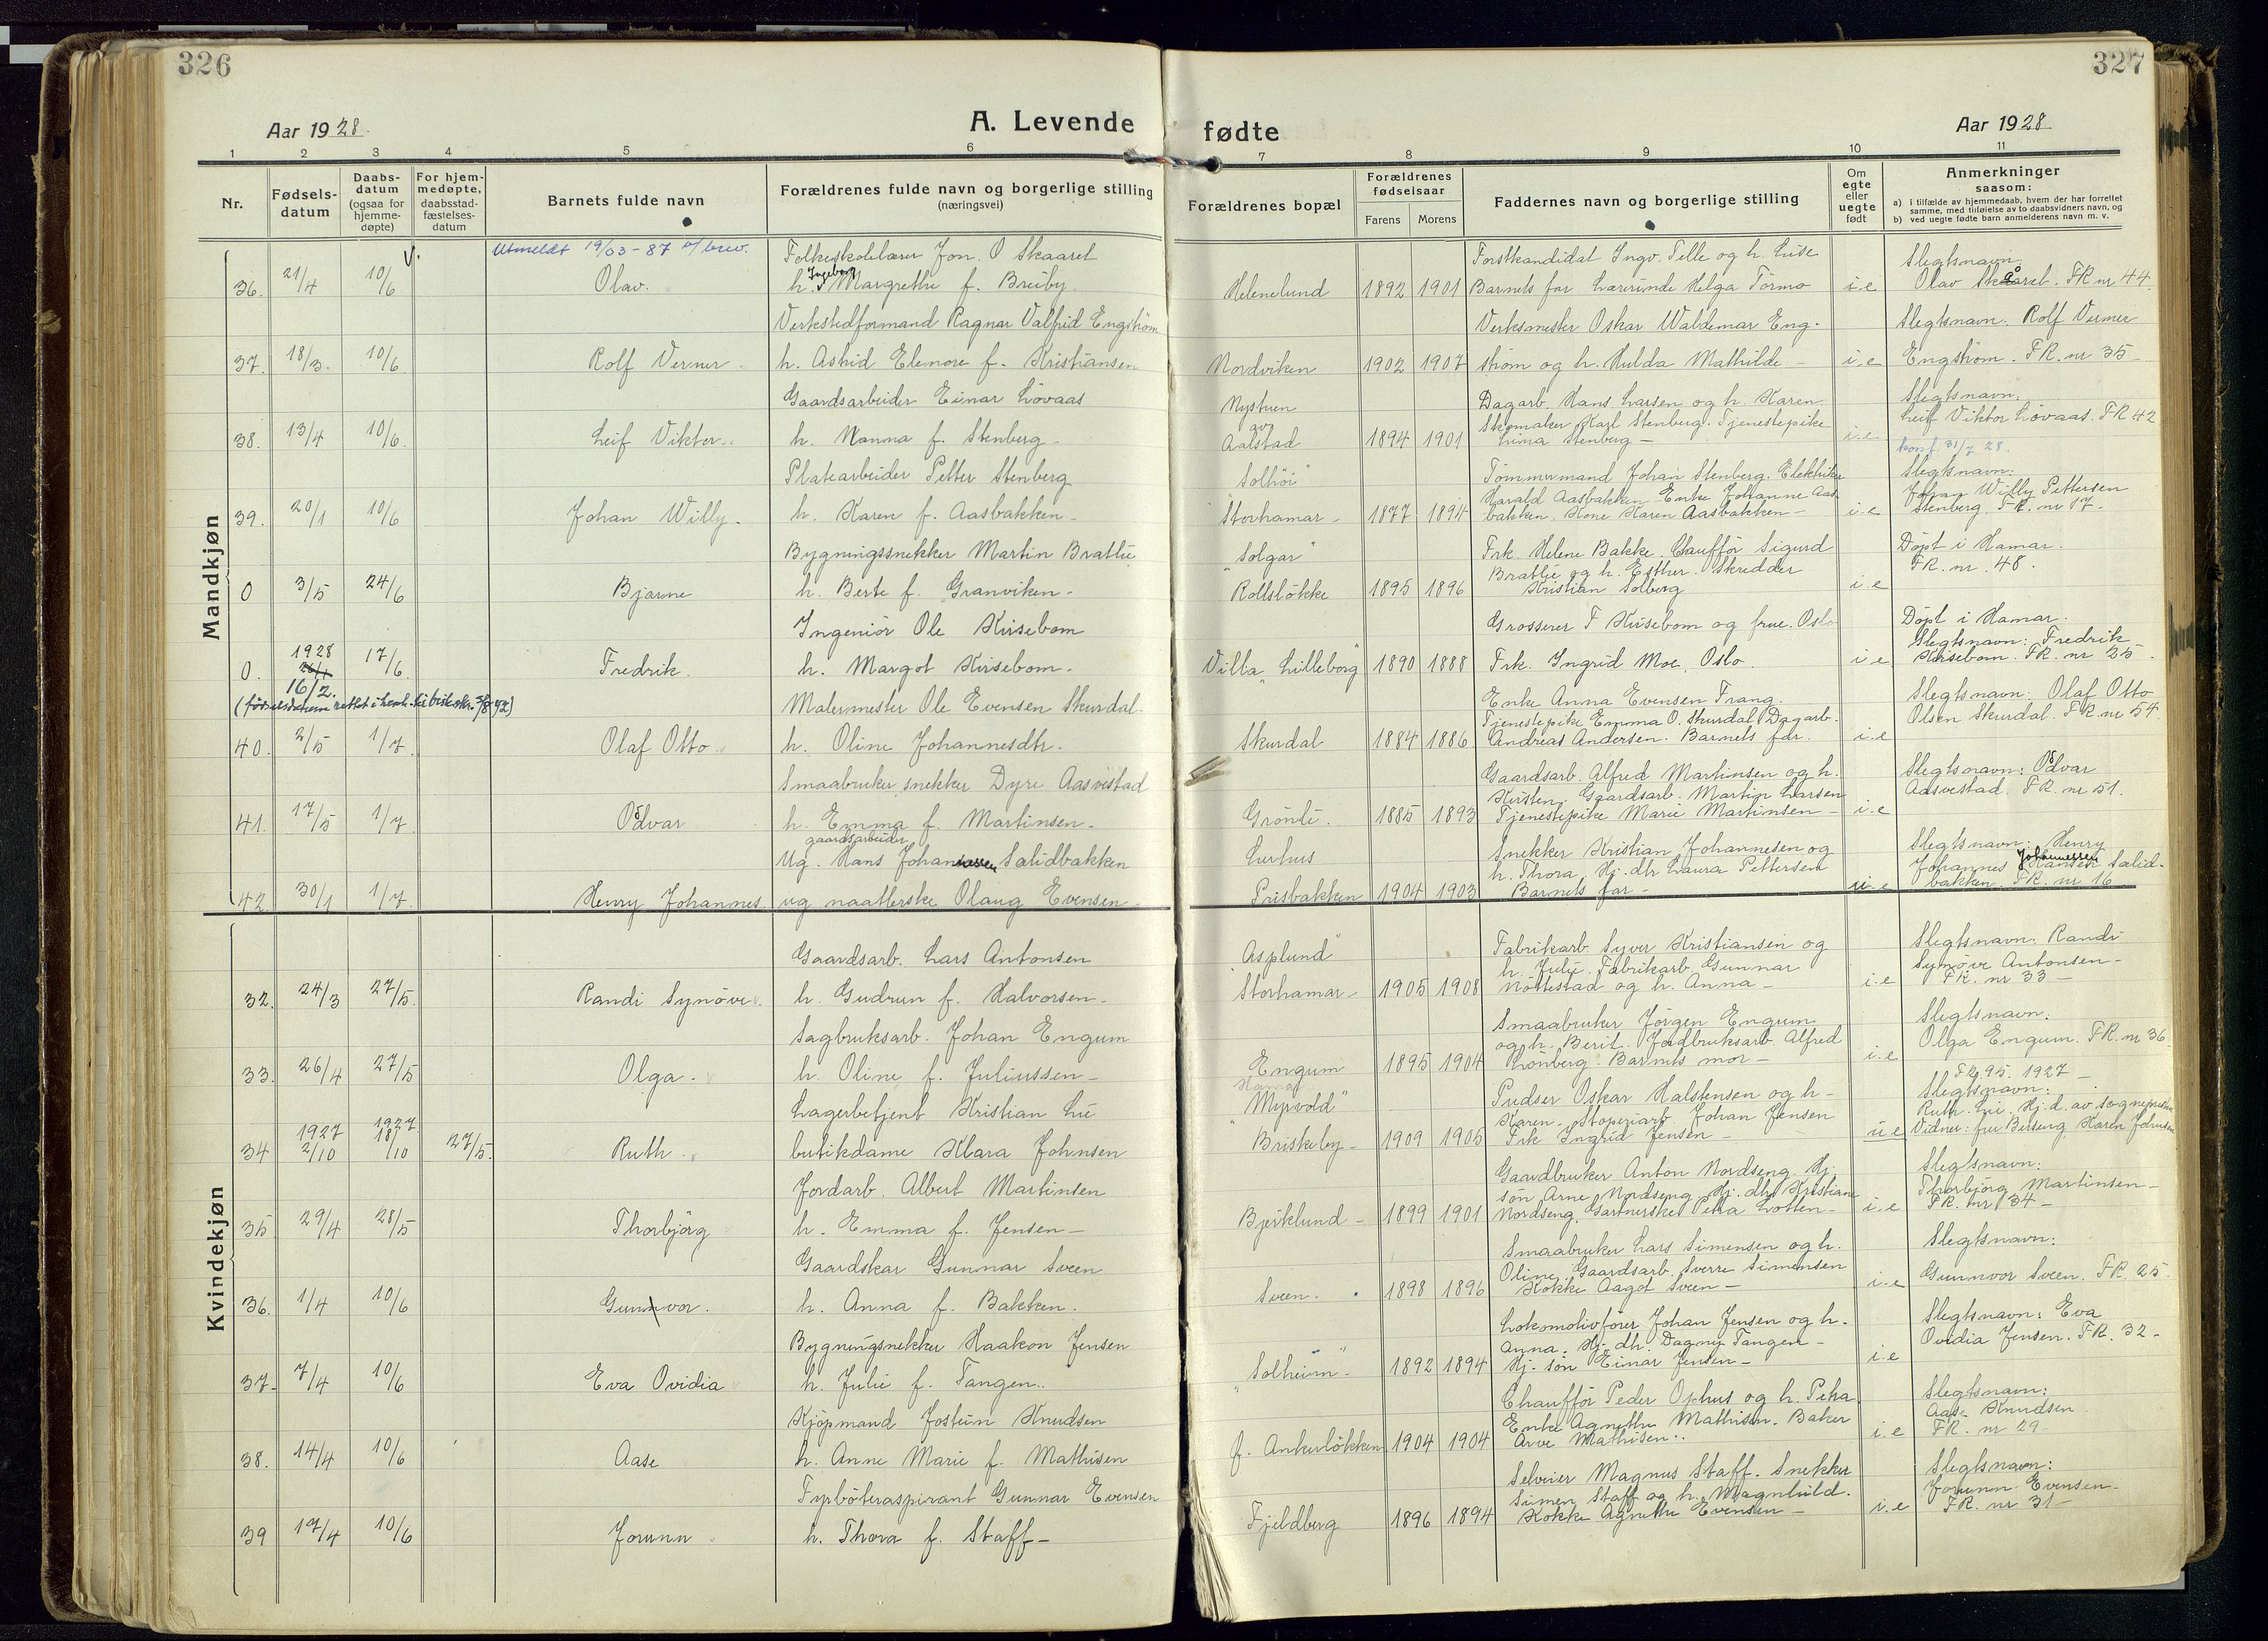 326
327
Aar 1928.
A. Levende
fødte
Aar 1928
1 2 3 4 5 6 7 8 9 10 11
Nr.
Fødsels-
datum
Daabs-
datum
(ogsaa for
hjemme-
døpte)
For hjem-
medøpte,
daabsstad-
fæstelses-
datum
Barnets fulde navn
Forældrenes fulde navn og borgerlige stilling
(næringsvei)
Forældrenes bopæl
Forældrenes
fødselsaar
Farens Morens
Faddernes navn og borgerlige stilling
Om
egte
eller
uegte
født
Anmerkninger
saasom:
a) i tilfælde av hjemmedaab, hvem der har forrettet
samme, med tilføielse av to daabsvidners navn, og
b) ved uegte fødte barn anmelderens navn m. v.
Mandkjøn
Utmeldt 19/03-87 v/brev.
36. 21/4 10/6 Olav.
Folkeskolelærer Jon. O Skaaret
h. Ingeborg Margrethe f. Breiby.
Helenelund 1892 1901
Forstkandidat Ingv. Telle og h. Lise
Barnets far Lærerinde Helga Tørmo
i.e
Slegtsnavn:
Olav Skåret. FR nr 44.
37. 18/3. 10/6. Rolf Verner
Verkstedformand Ragnar Valfrid Engstrøm
h. Astrid Elenore f. Kristiansen
Nordviken 1902 1907
Verksmester Oskar Waldemar Eng-
strøm og h. Hulda Mathilde -
i.e
Slegtsnavn: Rolf Verner
Engstrøm. FR. nr 35-
38. 13/4 10/6. Leif Viktor.
Gaardsarbeider Einar Løvaas
h. Nanna f. Stenberg -
Nystuen
av
Aalstad 1894 1901
Dagarb. Hans Larsen og h. Karen
Skomaker Karl Stenberg. Tjenestepike
Lina Stenberg -
i.e
Slegtsnavn:
Leif Viktor Løvaas. FR 42
konf 31/7 28.
39. 20/1 10/6 Johan Willy.
Platearbeider Petter Stenberg
h. Karen f. Aasbakken -
"Solhöi"
Storhamar - 1877 1894
Tømmermand Johan Stenberg. Elektriker
Harald Aasbakken Enke Johanne Aas-
bakken. Kone Karen Aasbakken -
i.e
Slegtsnavn:
Johan Willy Pettersen
Stenberg. FR. nr 17.
0 3/5 24/6 Bjarne
Bygningssnekker Martin Bratlie
h. Berte f. Granviken -
"Solgar"
Rollsløkke 1895 1896
Frk. Helene Bakke. Chauffør Sigurd
Bratlie og h. Esther. Skredder
Kristian Solberg
i.e
Døpt i Hamar.
FR. nr. 48.
0. 1928 26/1 16/2. 17/6. Fredrik.
Ingeniør Ole Kirsebom
h. Margot Kirsebom.
Villa "Lilleborg" 1890 1888
Grosserer F Kirsebom og frue. Oslo
Frk. Ingrid Moe, Oslo.
i.e
Døpt i Hamar.
Slegtsnavn: Fredrik
Kirsebom. FR. nr 25.
40. 2/5 1/7. Olaf Otto
Malermester Ole Evensen Skurdal.
h. Oline Johannesdtr.
Skurdal 1884 1886
Enke Anna Evensen Frang.
Tjenestepike Emma O. Skurdal Dagarb.
Andreas Andersen. Barnets far.
i.e
Slegtsnavn: Olaf Otto
Olsen Skurdal. FR. nr 54.
41. 17/5 1/7. Odvar
Smaabruker snekker Dyre Aasvestad
h. Emma f. Martinsen.
Grönli. 1885 1893
Gaardsarb. Alfred Martinsen og h.
Kirsten. Gaardsarb. Martin Larsen
Tjenestepike Marie Martinsen -
i.e
Slegtsnavn: Odvar
Aasvestad. FR. nr 51.
42 30/1 1/7. Henry Johannes
gaardsarbeider
Ug. Hans Johannessen Sælidbakken
ug naatlerske Olaug Evensen -
Lurhus
Prisbakken 1904 1903
Snekker Kristian Johannesen og
h. Thora Hj. dtr Laura Pettersen
Barnets far -
u.e
Slegtsnavn: Henry
Johannes Hansen Johannessen Sælid-
bakken. FR. nr 16
Kvindekjøn
32. 24/3 27/5. Randi Synøve.
Gaardsarb. Lars Antonsen
h. Gudrun f. Halvorsen -
"Asplund"
Storhamar - 1905 1908
Fabrikarb. Syver Kristiansen og
h. Julie. Fabrikarb. Gunnar
Nöttestad og h. Anna -
i.e
Slegtsnavn: Randi
Synøve Antonsen -
FR. nr 33 -
33. 26/4 27/5 Olga.
Sagbruksarb. Johan Engum
h. Oline f. Juliussen -
Engum 1895 1904
Smaabruker Jørgen Engum
og h. Berit. Jordbruksarb. Alfred
Lönberg. Barnets mor -
i.e
Slegtsnavn:
Olga Engum. FR. nr 36.
34 1927 2/10 1927 18/10 27/5. Ruth
Lagerbetjent Kristian Lie
butikdame Klara Johnsen
Hamar
"Myrvold"
Briskeby - 1909 1905
Pudser Oskar Halstensen og h -
Karen. Stoperiarb. Johan Jensen
Frk Ingrid Jensen -
u.e
FR 95. 1927 -
Slegtsnavn:
Ruth Lie. Hj. d. av sognepresten
Vidner: fru Berseng, Karen Johnsen
35 29/4 28/5 Thorbjörg
Jordarb. Albert Martinsen
h. Emma f. Jensen -
Bjerklund - 1899 1901
Gaardbruker Anton Nordseng. Hj.
søn Arne Nordseng Hj. dtr Kristiane
Nordseng. Gartnerske Petra Lotten -
i.e
Slegtsnavn:
Thorbjörg Martinsen -
FR. nr 34 -
36. 1/4 10/6 Gunnvor.
Gaardskar Gunnar Sveen
h. Anna f. Bakken.
Sveen. 1898 1896
Smaabruker Lars Simensen og h.
Oline. Gaardsarb. Sverre Simensen
Kokke Aagot Sveen -
i.e
Slegtsnavn:
Gunnvor Sveen. FR. 25.
37. 7/4 10/6 Eva Ovidia
Bygningsnekker Haakon Jensen
h. Julie f. Tangen.
"Solheim" - 1892 1894
Lokomotivfører Johan Jensen og h.
Anna. Hj. dtr. Dagny Tangen -
Hj. søn Einar Jensen -
i.e
Slegtsnavn: Eva
Ovidia Jensen. FR. 32 -
38. 14/4 10/6 Aase
Kjøpmand Jostein Knudsen
h. Anne Marie f. Mathisen
f. Ankerløkken 1904 1904
Chauffør Peder Ophus og h. Petra
Enke Agnethe Mathisen. Baker
Arve Mathisen.
i.e
Slegtsnavn:
Aase Knudsen
FR. nr 29
39 17/4 10/6 Jorunn
Fyrbøteraspirant Gunnar Evensen
h. Thora f. Staff -
Fjeldberg 1896 1894
Selveier Magnus Staff. Snekker
Simen Staff og h. Magnhild.
Kokke Agnethe Evensen -
i.e
Slegtsnavn:
Jorunn Evensen -
FR. nr 31 -